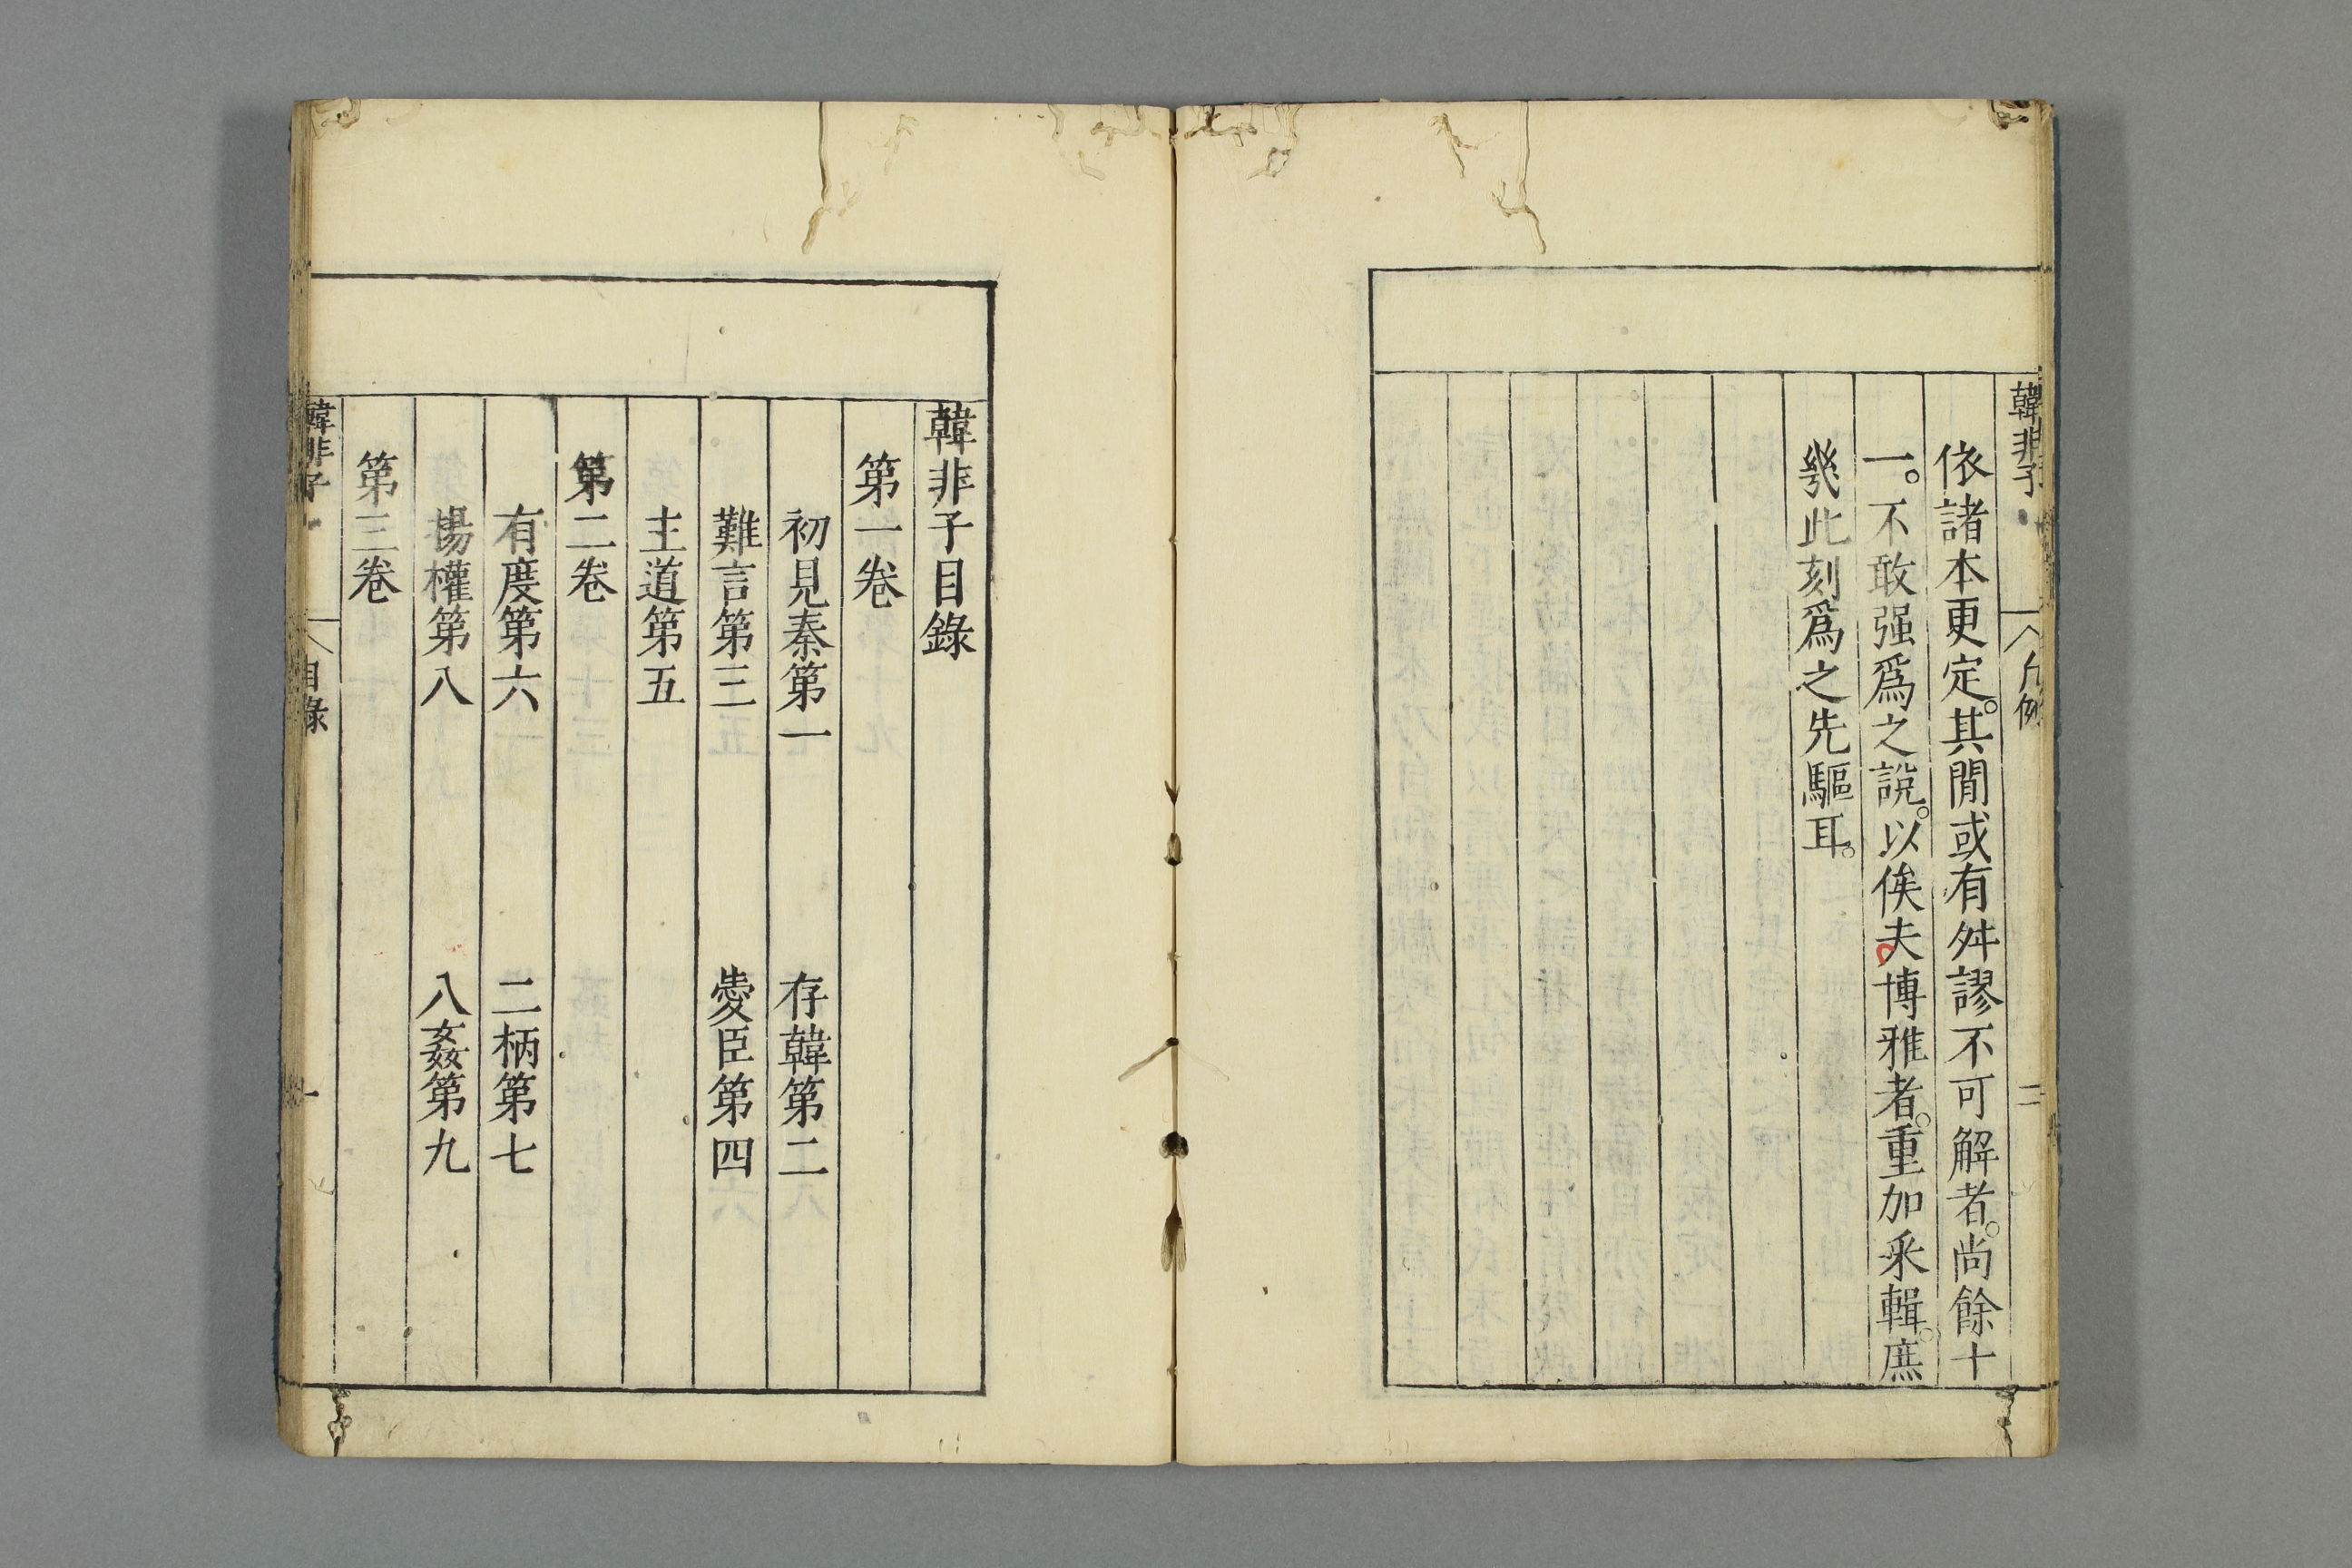 韓非子
凡例
二
依諸本更定。其閒或有舛謬不可解者。尚餘十
一。不敢强爲之說。以俟夫博雅者。重加采輯。庶
幾此刻爲之先驅耳。
韓非子目錄
第一卷
初見秦第一 存韓第二
難言第三 愛臣第四
主道第五
第二卷
有度第六 二柄第七
楊權第八 八姦第九
第三卷
韓非子
目錄
一